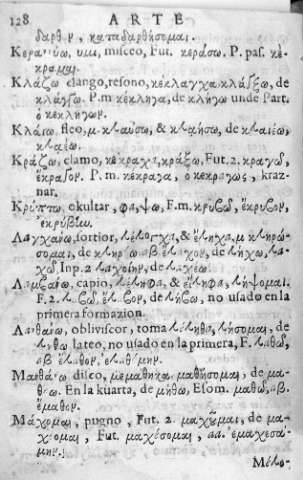 128 ARTE
δαρθην, καταδαρθήσομαι.
Κεραννύω, υμι, misceo, Fut. κεράσω. P. pas. κέ-
κραμαι.
Κλάζω clango, resono, κέκλαγχα, κλάγξω, de
κλάγζω. P. m κέκληγα, de κλήγω unde Part.
ὁ κεκληγώς.
Κλαίω fleo, μ κλαύσω, & κλαιήσω, de κλαιέω,
Κράζω, clamo, κέκραχα, κράξω, Fut. 2. κραγῶ,
ἔκραγον. P. m. κέκραγα, ὁ κεκραγὼς, kraz-
nar.
Κρύπτω, okultar, φα, ψω, F. m. κρυβῶ, ἔκρυβον,
Λαγχάνω, sortior, λέλογχα, & εἴληχα, μ κληρώ-
σομαι, de ἔλαχον, de λήχω, λα-
χῶ, Inp. 2 λαχοίην, de λαχέω.
Λαμβάνω, capio, λέληφα, & εἴληφα, λήψομαι.
F. 2. λαβῶ, ἔλαβον, de λήβω, no usado en la
primera formazion.
Λανθάνω, obliviscor, toma λέληθα, λήσομαι, de
λήθω lateo, no usado en la primera, F. λαθῶ,
Μανθάνω disco, μεμάθηκα μαθήσομαι, de μα-
θέω. En la kuarta, de μήθω, Esom. μαθῶ,
ἔμαθον.
Μάχομαι, pugno, Fut. 2. μαχοῦμαι, de μα-
χέομαι, Fut. μαχέσομαι, ἐμαχεσά-
μην.
Μέλο-